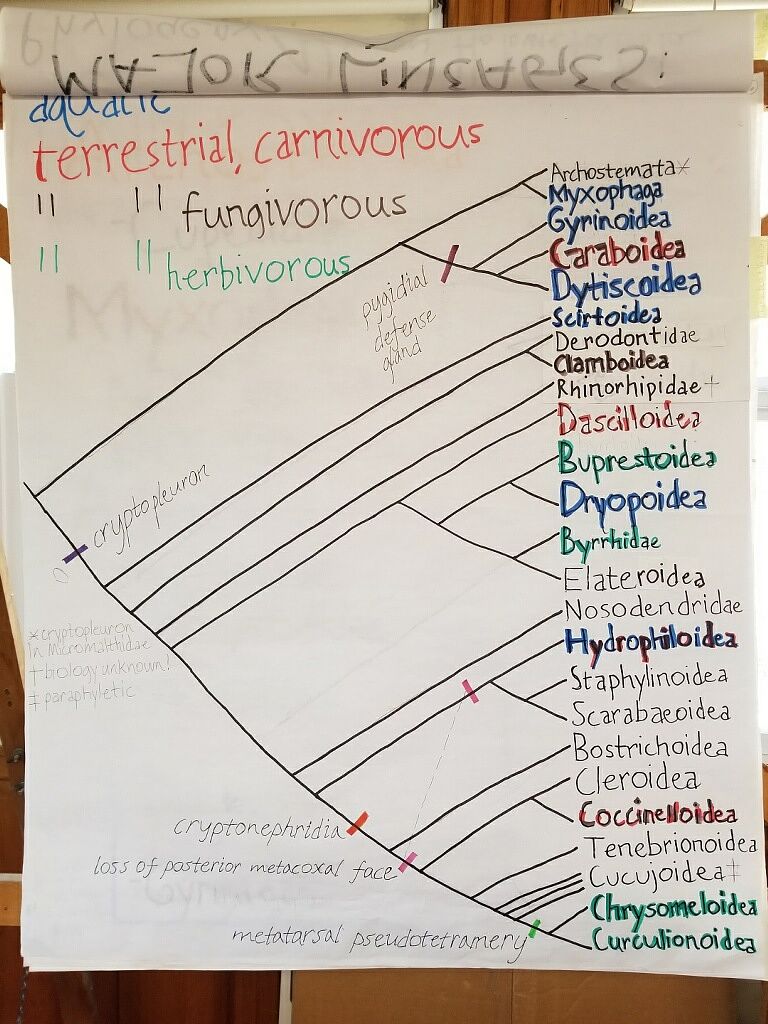 MAJOR LINEAGES:
aquatic
terrestrial, carnivorous
" " fungivorous
" " herbivorous
Archostemata*
Myxophaga
Gyrinoidea
Caraboidea
Dytiscoidea
pygidial
defense
gland
Scirtoidea
Derodontidae
Clamboidea
Rhinorhipidae†
Dascilloidea
Buprestoidea
Dryopoidea
Byrrhidae
Elateroidea
cryptopleuron
Nosodendridae
Hydrophiloidea
Staphylinoidea
Scarabaeoidea
Bostrichoidea
Cleroidea
Coccinelloidea
Tenebrionoidea
Cucujoidea‡
Chrysomeloidea
Curculionoidea
*cryptopleuron
in Micromalthidae
†biology unknown!
‡ paraphyletic
cryptonephridia
loss of posterior metacoxal face
metatarsal pseudotetramery